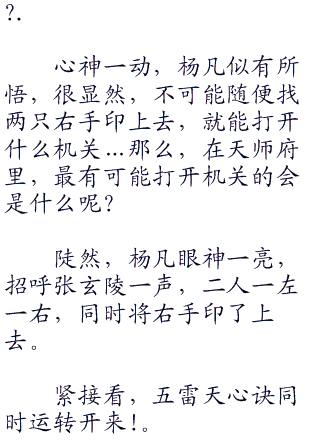 ?.
心神一动，杨凡似有所
悟，很显然，不可能随便找
两只右手印上去，就能打开
什么机关…那么，在天师府
里，最有可能打开机关的会
是什么呢？
陡然，杨凡眼神一亮，
招呼张玄陵一声，二人一左
一右，同时将右手印了上
去。
紧接看，五雷天心诀同
时运转开来！。